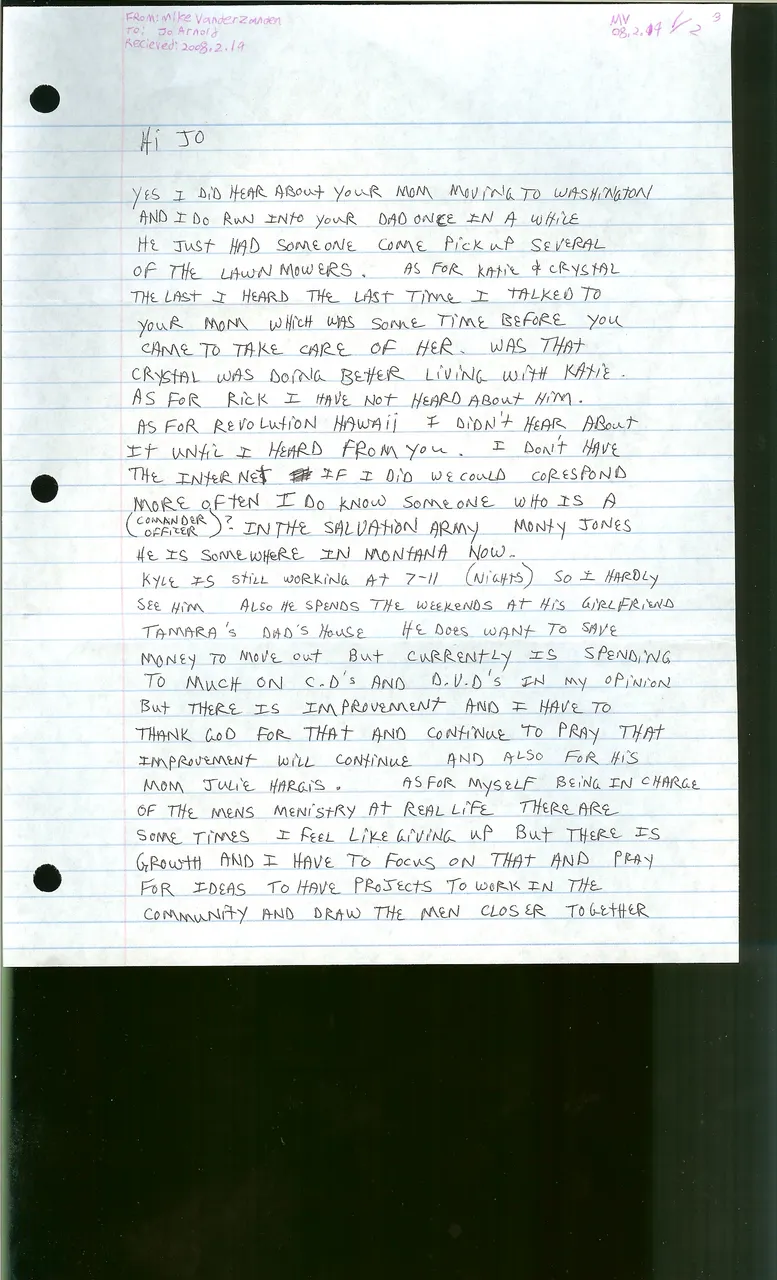 From: Mike VanderZanden
To: Jo Arnold
Recieved: 2008.2.19
MV
08.2.19 ✓ 2 3
Hi JO
YES I DID HEAR ABOUT YOUR MOM MOVING TO WASHINGTON
AND I DO RUN INTO YOUR DAD ONCE IN A WHILE
HE JUST HAD SOMEONE COME PICK UP SEVERAL
OF THE LAWN MOWERS. AS FOR KATIE & CRYSTAL
THE LAST I HEARD THE LAST TIME I TALKED TO
YOUR MOM WHICH WAS SOME TIME BEFORE YOU
CAME TO TAKE CARE OF HER. WAS THAT
CRYSTAL WAS DOING BETTER LIVING WITH KATIE.
AS FOR RICK I HAVE NOT HEARD ABOUT HIM.
AS FOR REVOLUTION HAWAII I DIDN'T HEAR ABOUT
IT UNTIL I HEARD FROM YOU. I DON'T HAVE
THE INTERNET IF I DID WE COULD CORESPOND
MORE OFTEN I DO KNOW SOMEONE WHO IS A
(COMANDER OFFICER)? IN THE SALVATION ARMY MONTY JONES
HE IS SOMEWHERE IN MONTANA NOW..
KYLE IS STILL WORKING AT 7-11 (NIGHTS) SO I HARDLY
SEE HIM ALSO HE SPENDS THE WEEKENDS AT HIS GIRLFRIEND
TAMARA'S DAD'S HOUSE HE DOES WANT TO SAVE
MONEY TO MOVE OUT BUT CURRENTLY IS SPENDING
TO MUCH ON C.D'S AND D.V.D'S IN MY OPINION
BUT THERE IS IMPROVEMENT AND I HAVE TO
THANK GOD FOR THAT AND CONTINUE TO PRAY THAT
IMPROVEMENT WILL CONTINUE AND ALSO FOR HIS
MOM JULIE HARGIS. AS FOR MYSELF BEING IN CHARGE
OF THE MENS MENISTRY AT REAL LIFE THERE ARE
SOME TIMES I FEEL LIKE GIVING UP BUT THERE IS
GROWTH AND I HAVE TO FOCUS ON THAT AND PRAY
FOR IDEAS TO HAVE PROJECTS TO WORK IN THE
COMMUNITY AND DRAW THE MEN CLOSER TOGETHER